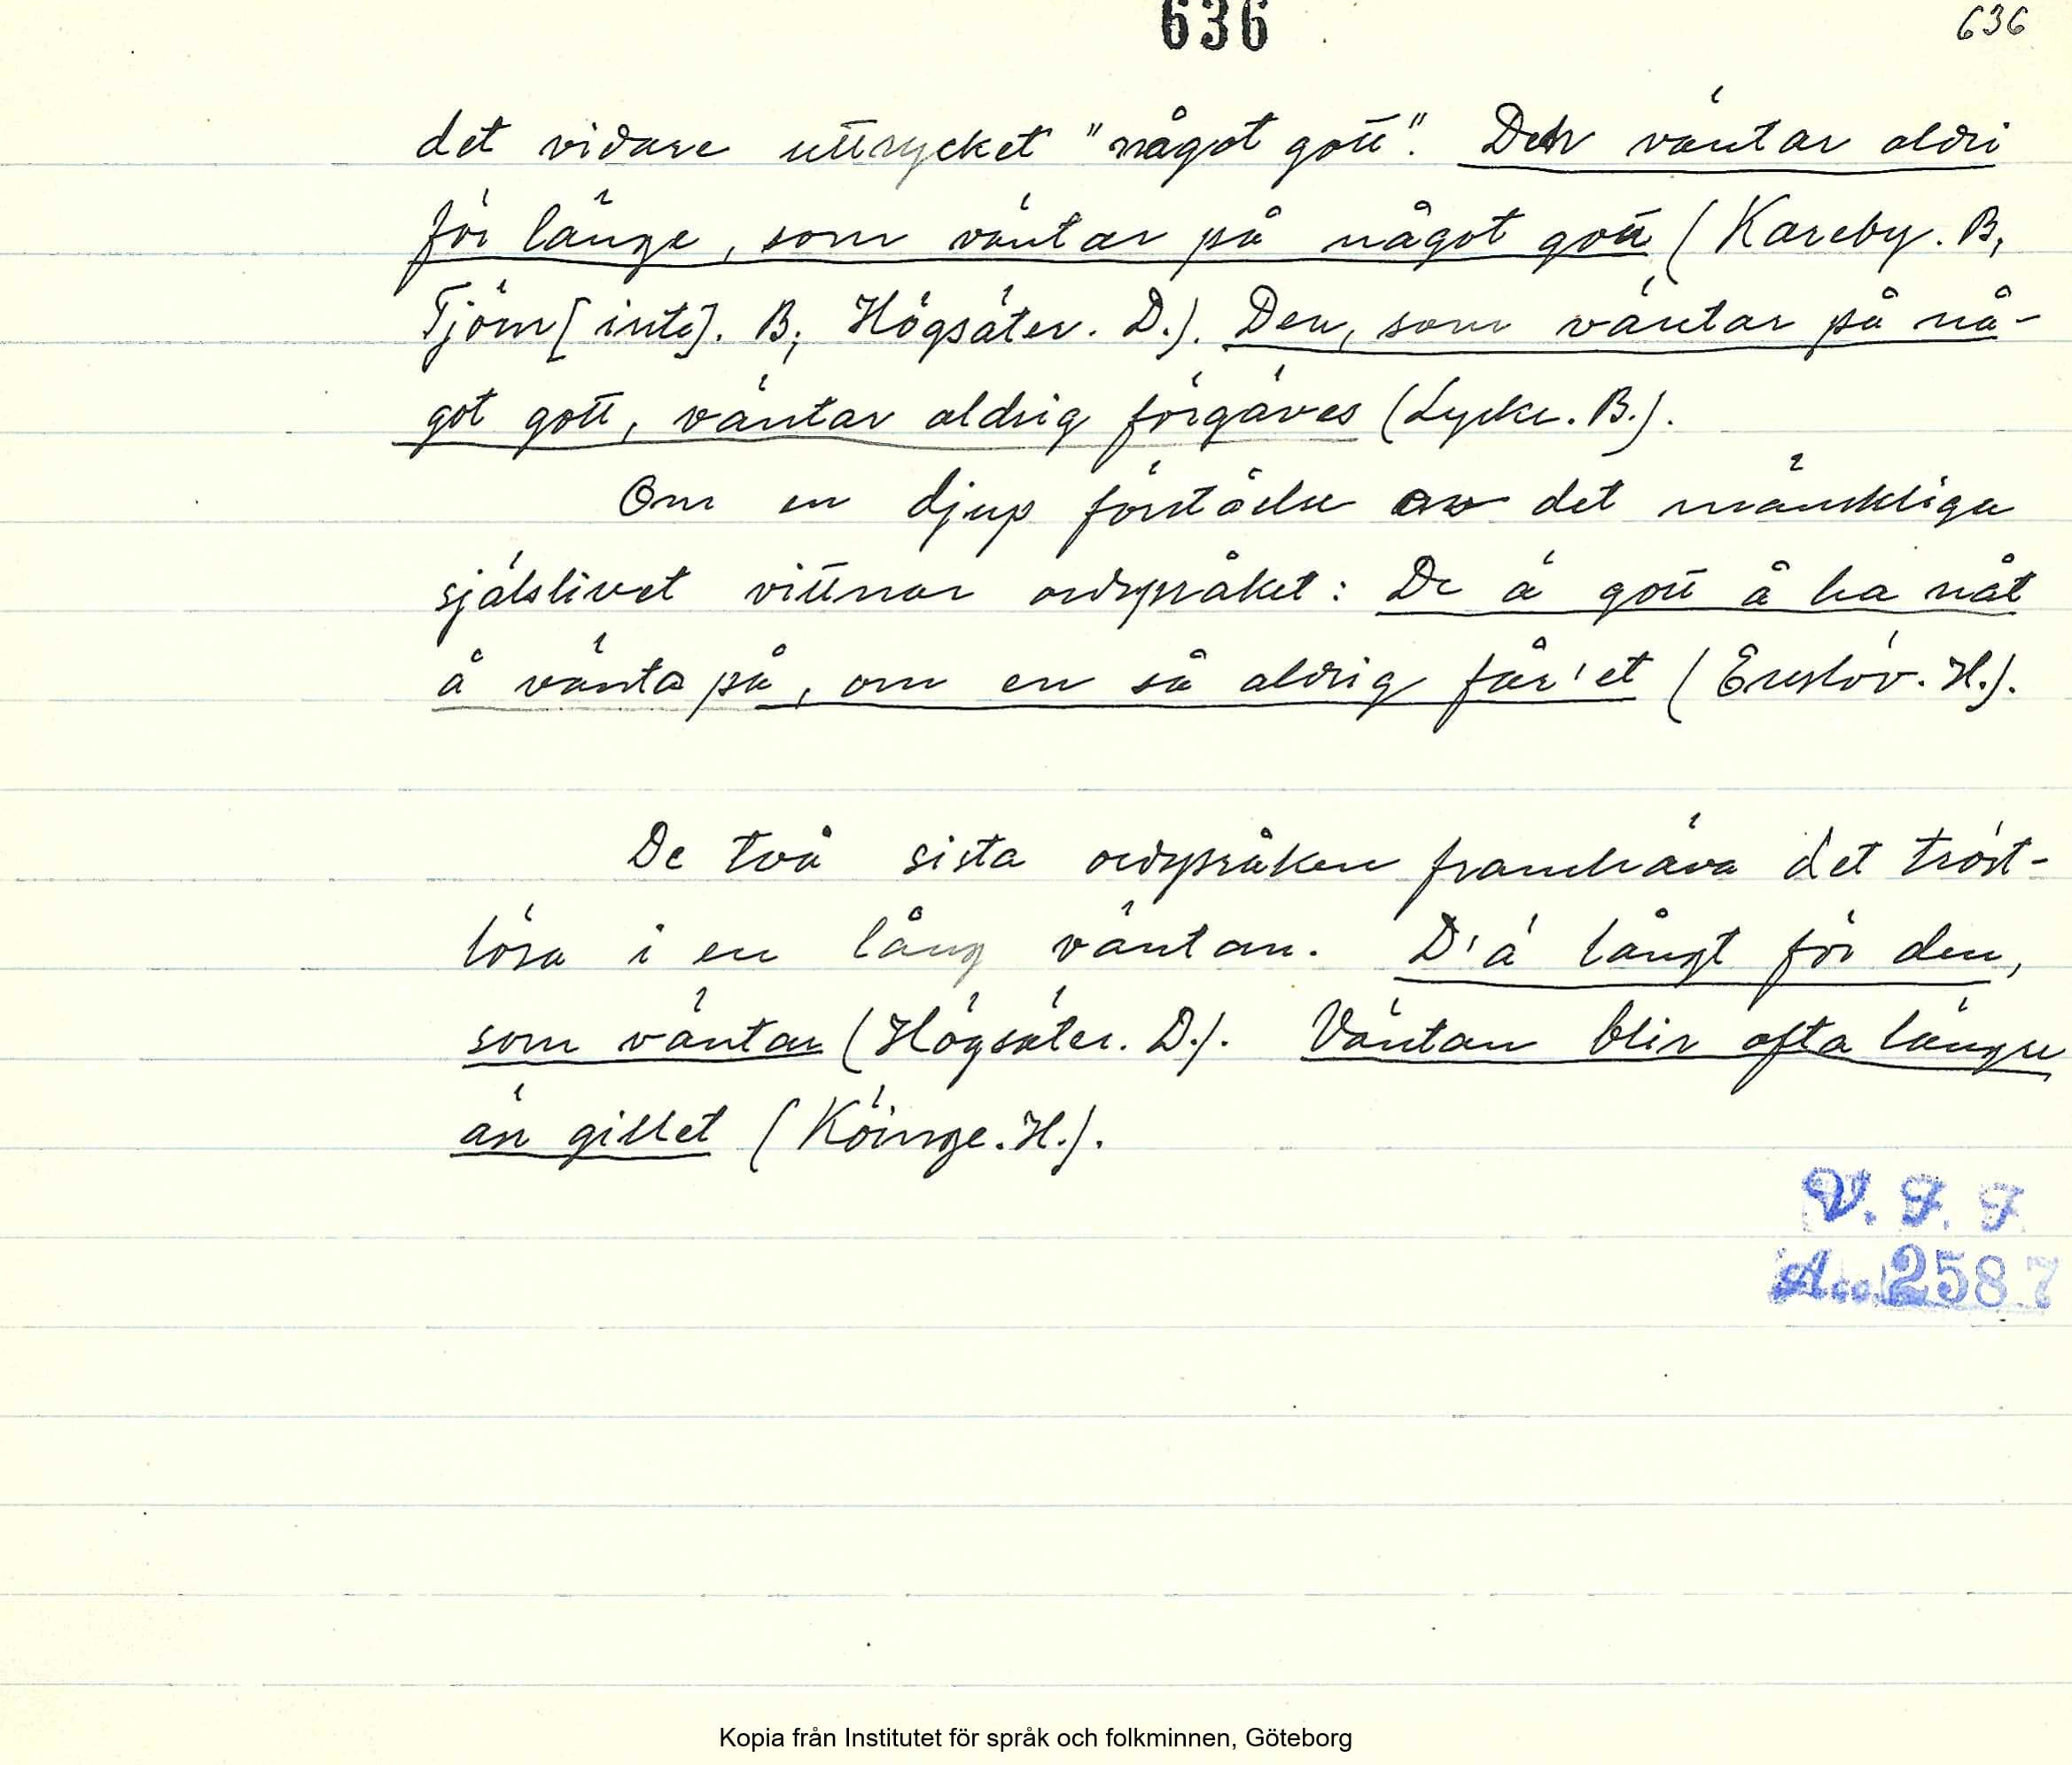 636
636
det vidare uttrycket "något gott". Den väntar aldri
för länge, som väntar på något gott (Kareby. B,
Tjörn [inte]. B; Högsäter. D.). Den, som väntar på nå-
got gott, väntar aldrig förgäves (Lycke. B.).
Om en djup förståelse av det mänskliga
själslivet vittnar ordspråket: De ä gott å ha nåt
å vänta på, om en så aldrig får'et (Enslöv. H.).
De två sista ordspråken framhäva det tröst-
lösa i en lång väntan. D'ä långt för den,
som väntar (Högsäter. D.). Väntan blir ofta längre
än gillet (Köinge. H.).
V. F. F.
Acc. 2587
Kopia från Institutet för språk och folkminnen, Göteborg